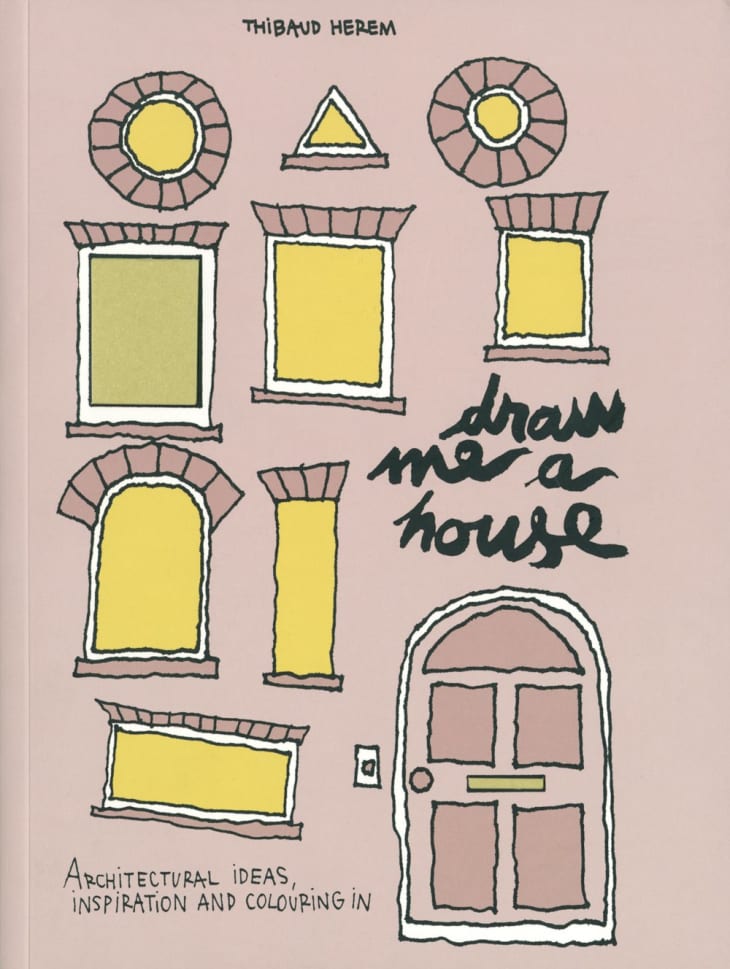 THIBAUD HEREM
draw
me a
house
ARCHITECTURAL IDEAS,
INSPIRATION AND COLOURING IN